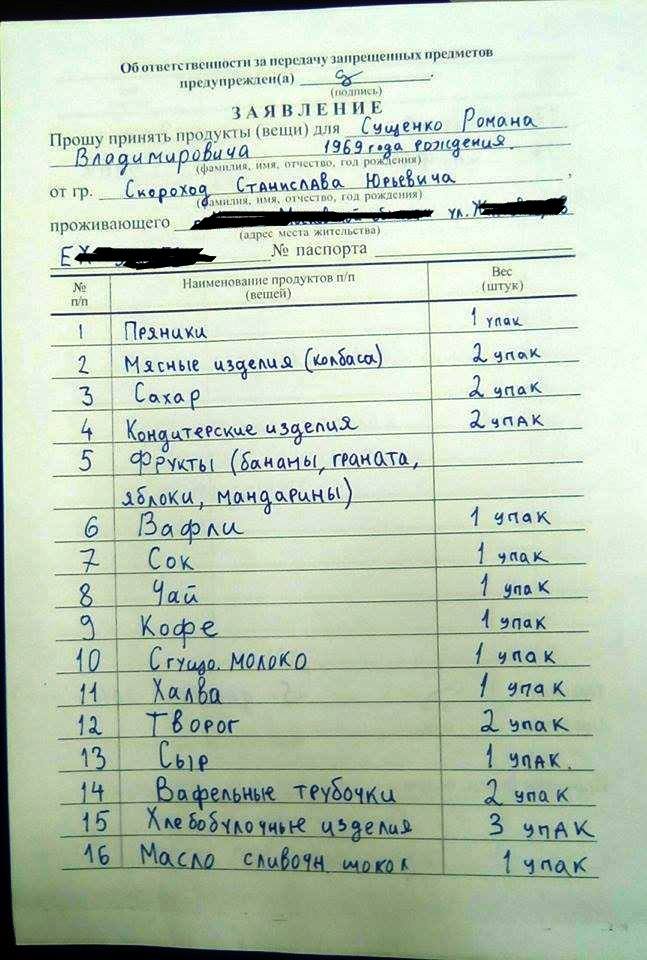 Об ответственности за передачу запрещенных предметов
предупрежден(а)
(подпись)
ЗАЯВЛЕНИЕ
Прошу принять продукты (вещи) для Сущенко Романа
Владимировича 1969 года рождения.
(фамилия, имя, отчество, год рождения)
от гр. Скороход Станислава Юрьевича,
(фамилия, имя, отчество, год рождения)
проживающего ул.
(адрес места жительства)
№ паспорта
№ п/п Наименование продуктов п/п (вещей) Вес (штук)
1 Пряники 1 упак
2 Мясные изделия (колбаса) 2 упак
3 Сахар 2 упак
4 Кондитерские изделия 2 упак
5 Фрукты (бананы, граната,
яблоки, мандарины)
6 Вафли 1 упак
7 Сок 1 упак
8 Чай 1 упак
9 Кофе 1 упак
10 Сгущо. молоко 1 упак
11 Халва 1 упак
12 Творог 2 упак
13 Сыр 1 упак.
14 Вафельные трубочки 2 упак
15 Хлебобулочные изделия 3 упак
16 Масло сливочн шокол 1 упак